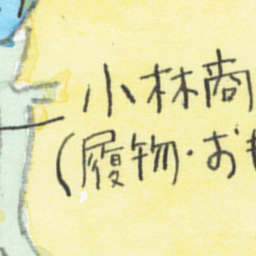 小林商
(履物・お